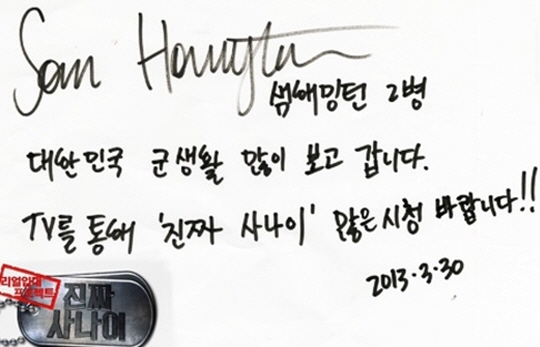 Sam Hammington
샘해밍턴 2병
대한민국 군생활 많이 보고 갑니다.
TV를 통해 '진짜 사나이' 많은 시청 바랍니다!!
2013·3·30
리얼입대
프로젝트
진짜
사나이